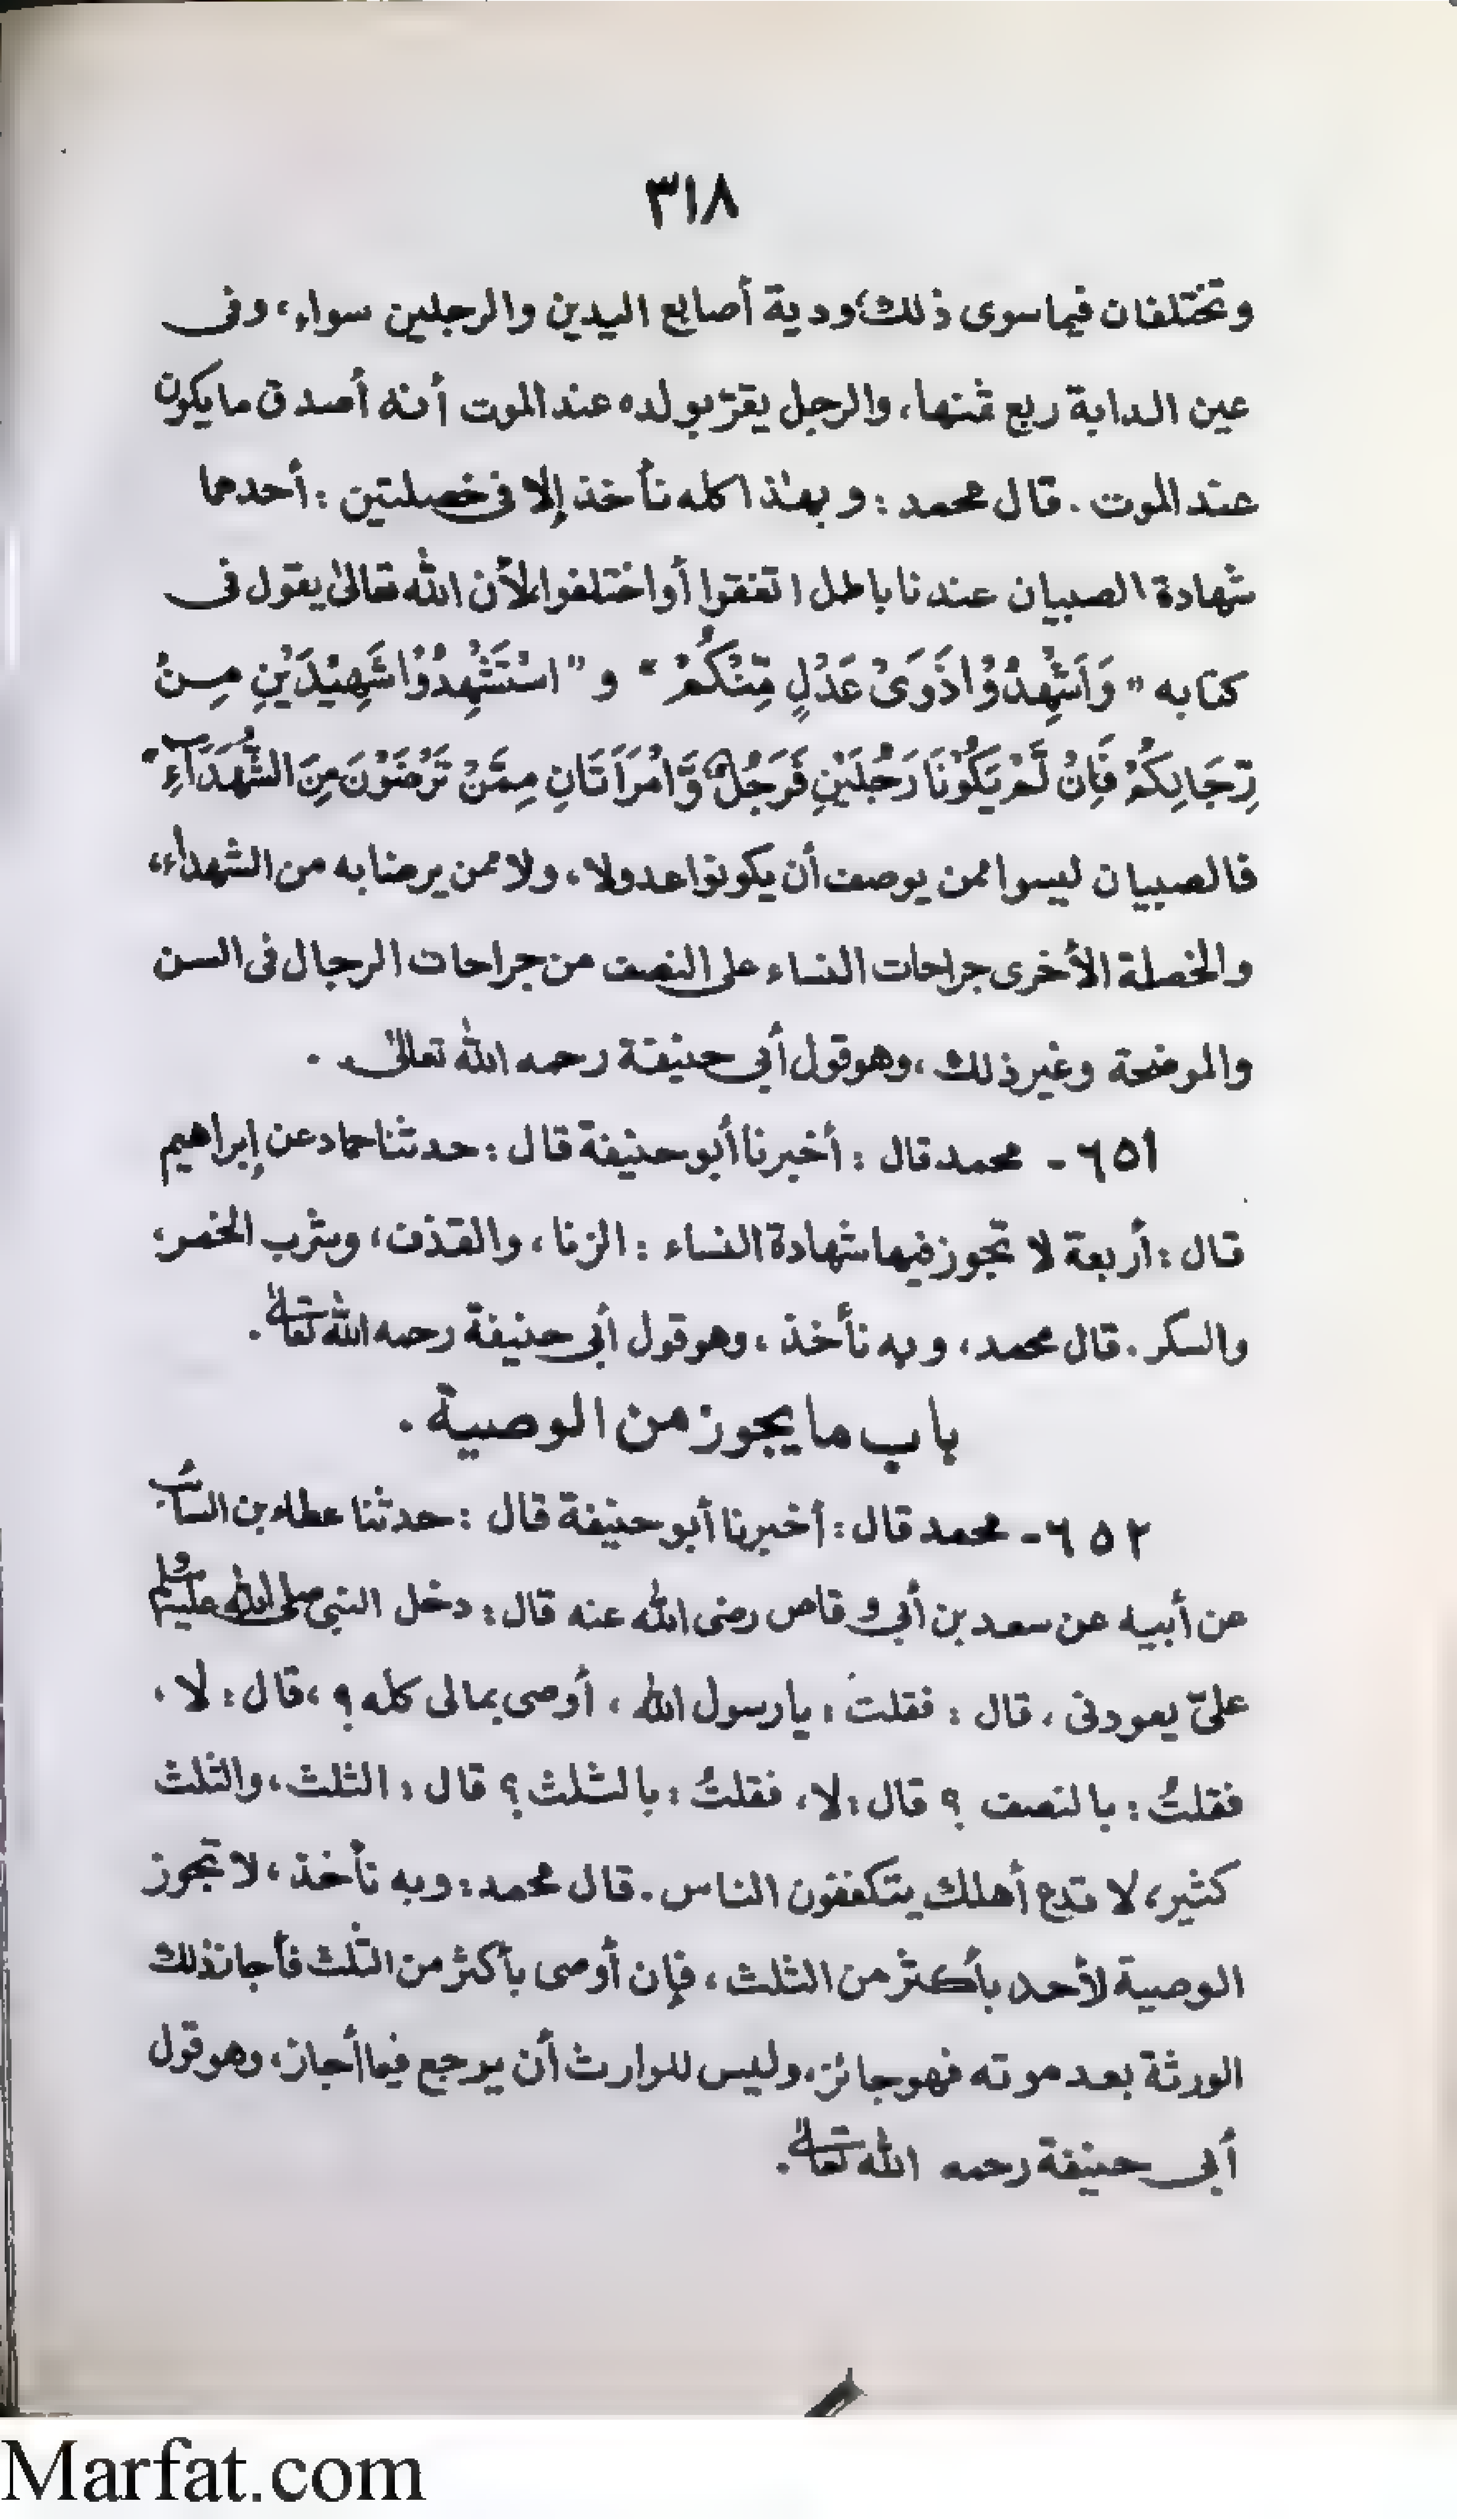 ٣١٨
وتختلفان فيما سوى ذلك، ودية أصابع اليدين والرجلين سواء، وفى
عين الدابة ربع ثمنها، والرجل يقرّ بولده عند الموت أنه أصدق ما يكون
عند الموت. قال محمد: وبهذا كله نأخذ إلا فى خصلتين: أحدهما
شهادة الصبيان عندنا باطل اتفقوا أو اختلفوا لأن الله تعالىٰ يقول فى
كتابه "وَاَشْهِدُوْا ذَوَىْ عَدْلٍ مِّنْكُمْ" و "اسْتَشْهِدُوْا شَهِيْدَيْنِ مِنْ
رِّجَالِكُمْ فَاِنْ لَّمْ يَكُوْنَا رَجُلَيْنِ فَرَجُلٌ وَّامْرَاَتَانِ مِمَّنْ تَرْضَوْنَ مِنَ الشُّهَدَآءِ"
فالصبيان ليسوا ممن يوصف أن يكونوا عدولا، ولا ممن يرضا به من الشهداء،
والخصلة الأخرى جراحات النساء على النصف من جراحات الرجال فى السن
والموضحة وغير ذلك، وهو قول أبي حنيفة رحمه الله تعالىٰ.
٦٥١- محمد قال: أخبرنا أبو حنيفة قال: حدثنا حماد عن إبراهيم
قال: أربعة لا تجوز فيها شهادة النساء: الزنا، والقذف، وشرب الخمر،
والسكر. قال محمد، وبه نأخذ، وهو قول أبي حنيفة رحمه الله تعالىٰ.
باب ما يجوز من الوصية.
٦٥٢- محمد قال: أخبرنا أبو حنيفة قال: حدثنا عطاء بن السائب
عن أبيه عن سعد بن أبي وقاص رضى الله عنه قال: دخل النبى صلى الله عليه وسلم
علىّ يعودنى، قال: فقلتُ: يا رسول الله، أوصى بمالى كله؟، قال: لا،
فقلتُ: بالنصف؟ قال: لا، فقلتُ: بالثلث؟ قال: الثلث، والثلث
كثير، لا تدع أهلك يتكففون الناس. قال محمد: وبه نأخذ، لا تجوز
الوصية لأحد بأكثر من الثلث، فإن أوصى بأكثر من الثلث فأجاز ذلك
الورثة بعد موته فهو جائز، وليس للوارث أن يرجع فيما أجاز، وهو قول
أبي حنيفة رحمه الله تعالىٰ.
Marfat.com